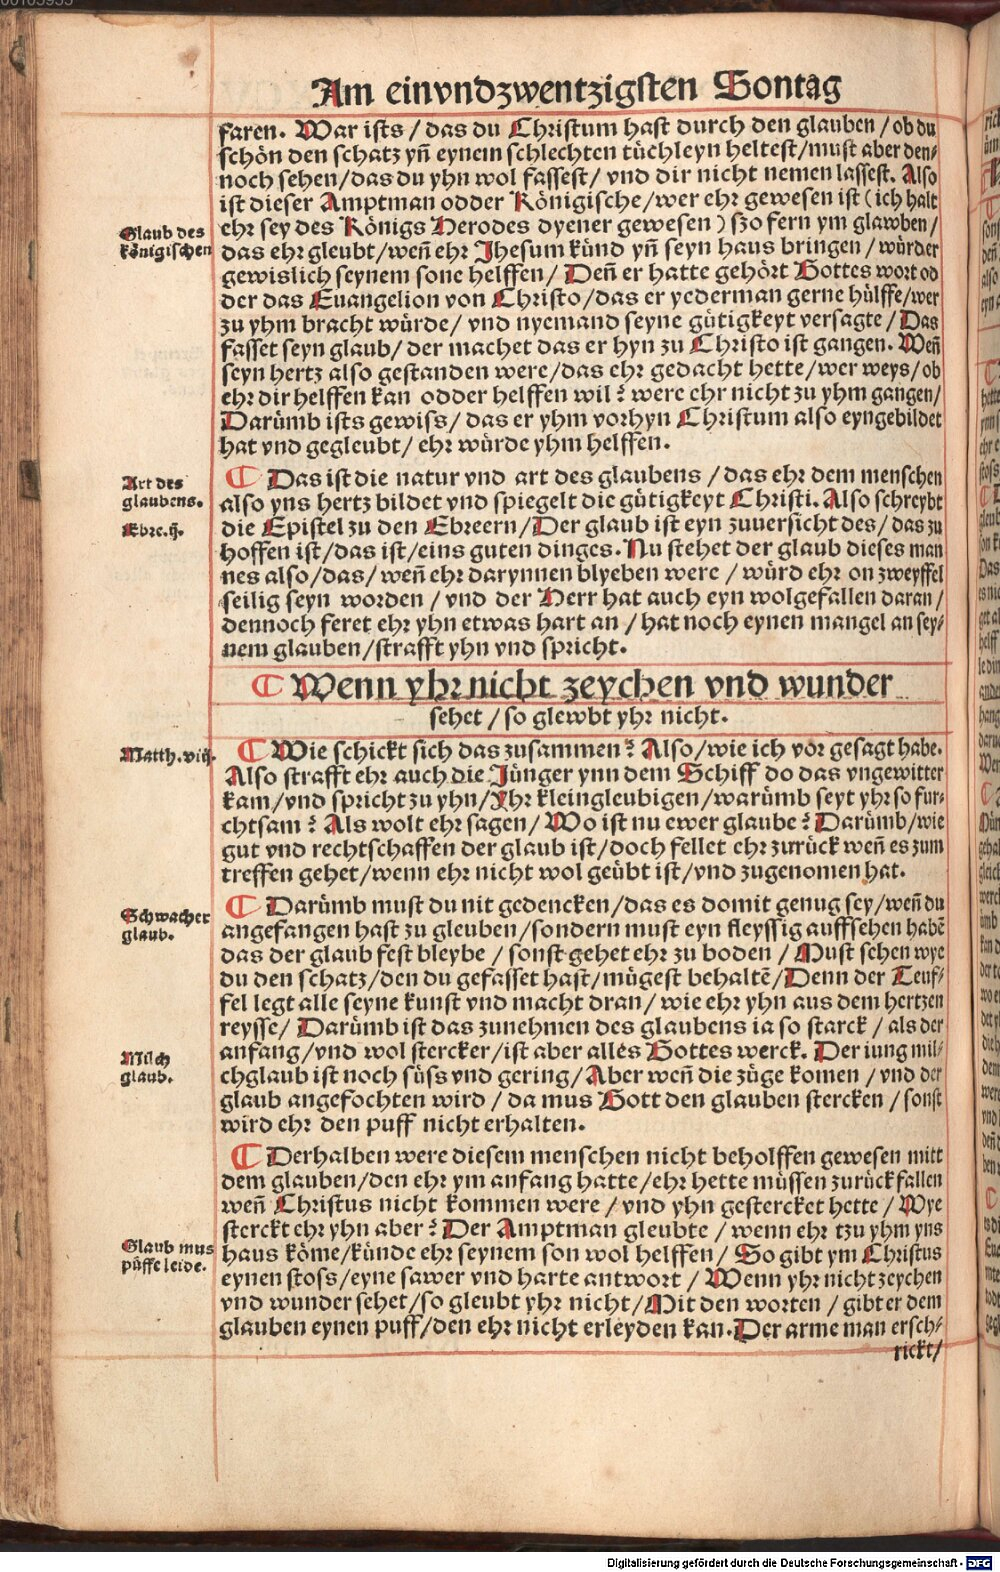 Am einvndzwentzigsten Sontag
faren. War ists / das du Christum hast durch den glauben / ob du
schön den schatz yñ eynem schlechten tüchleyn heltest/must aber den-
noch sehen/das du yhn wol fassest/ vnd dir nicht nemen lassest. Also
ist dieser Amptman odder Königische/wer ehr gewesen ist (ich halt
Glaub des
königischen
ehr sey des Königs Herodes dyener gewesen) szo fern ym glawben/
das ehr gleubt/weñ ehr Jhesum künd yñ seyn haus bringen / würder
gewislich seynem sone helffen/ Deñ er hatte gehört Gottes wort od
der das Euangelion von Christo/das er yederman gerne hülffe/wer
zu yhm bracht würde/ vnd nyemand seyne gütigkeyt versagte / Das
fasset seyn glaub/ der machet das er hyn zu Christo ist gangen. Weñ
seyn hertz also gestanden were/das ehr gedacht hette/wer weys/ ob
ehr dir helffen kan odder helffen wil? were ehr nicht zu yhm gangen/
Darümb ists gewiss/ das er yhm vorhyn Christum also eyngebildet
hat vnd gegleubt/ ehr würde yhm helffen.
Art des
glaubens.
Ebre. xj.
¶ Das ist die natur vnd art des glaubens / das ehr dem menschen
also yns hertz bildet vnd spiegelt die gütigkeyt Christi. Also schreybt
die Epistel zu den Ebreern/Der glaub ist eyn zuuersicht des/das zu
hoffen ist/das ist/eins guten dinges. Nu stehet der glaub dieses man
nes also/das/ weñ ehr darynnen blyeben were / würd ehr on zweyffel
seilig seyn worden / vnd der Herr hat auch eyn wolgefallen daran/
dennoch feret ehr yhn etwas hart an / hat noch eynen mangel an sey-
nem glauben/strafft yhn vnd spricht.
¶ Wenn yhr nicht zeychen vnd wunder
sehet / so glewbt yhr nicht.
Matth. viij.
¶ Wie schickt sich das zusammen? Also/wie ich vor gesagt habe.
Also strafft ehr auch die Jünger ynn dem Schiff do das vngewitter
kam/vnd spricht zu yhn/Yhr kleingleubigen/warümb seyt yhr so fur-
chtsam? Als wolt ehr sagen/ Wo ist nu ewer glaube? Darümb/wie
gut vnd rechtschaffen der glaub ist/doch fellet ehr zurück weñ es zum
treffen gehet/wenn ehr nicht wol geübt ist/vnd zugenomen hat.
Schwacher
glaub.
¶ Darümb must du nit gedencken/das es domit genug sey/weñ du
angefangen hast zu gleuben/sondern must eyn fleyssig auffsehen habē
das der glaub fest bleybe / sonst gehet ehr zu boden / Must sehen wye
du den schatz/den du gefasset hast/mügest behaltē/Denn der Teuf-
fel legt alle seyne kunst vnd macht dran/ wie ehr yhn aus dem hertzen
reysse/ Darümb ist das zunehmen des glaubens ia so starck / als der
Milch
glaub.
anfang/vnd wol stercker/ist aber alles Gottes werck. Der iung mil-
chglaub ist noch süss vnd gering/Aber weñ die züge komen / vnd der
glaub angefochten wird / da mus Gott den glauben stercken / sonst
wird ehr den puff nicht erhalten.
¶ Derhalben were diesem menschen nicht beholffen gewesen mitt
dem glauben/den ehr ym anfang hatte/ehr hette müssen zurück fallen
weñ Christus nicht kommen were / vnd yhn gestercket hette / Wye
sterckt ehr yhn aber? Der Amptman gleubte / wenn ehr tzu yhm yns
Glaub mus
püffe leide.
haus köme/künde ehr seynem son wol helffen/ So gibt ym Christus
eynen stoss/eyne sawer vnd harte antwort / Wenn yhr nicht zeychen
vnd wunder sehet/so gleubt yhr nicht/Mit den worten / gibt er dem
glauben eynen puff/den ehr nicht erleyden kan. Der arme man ersch-
rickt/
Digitalisierung gefördert durch die Deutsche Forschungsgemeinschaft - DFG